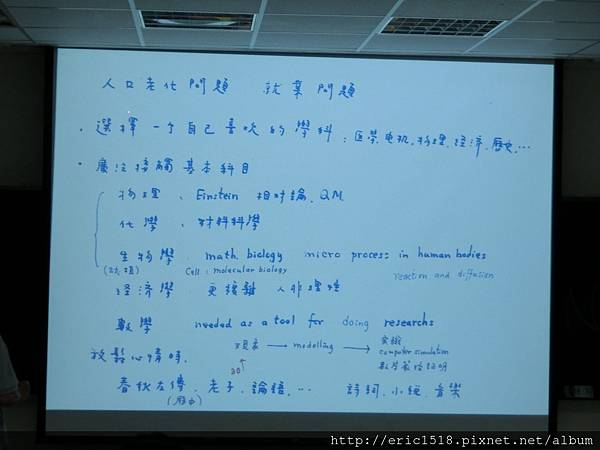 人口老化問題 就業問題
. 選擇 一个自己喜欢的學科：医學,电机,物理,经济,歷史,...
. 廣泛接觸 基本科目
物理 、 Einstein 相對論、QM
化學 、 材料科學
生物學 math biology micro process in human bodies
Cell : molecular biology reaction and diffusion
经濟學 更複雜 人非理性
數學 needed as a tool for doing researchs
現象 → modelling → 实驗
computer simulation
放鬆心情時、
春秋左傳、老子、論語、... 詩詞、小説、音樂
(歷史)
http://eric1518.pixnet.net/album